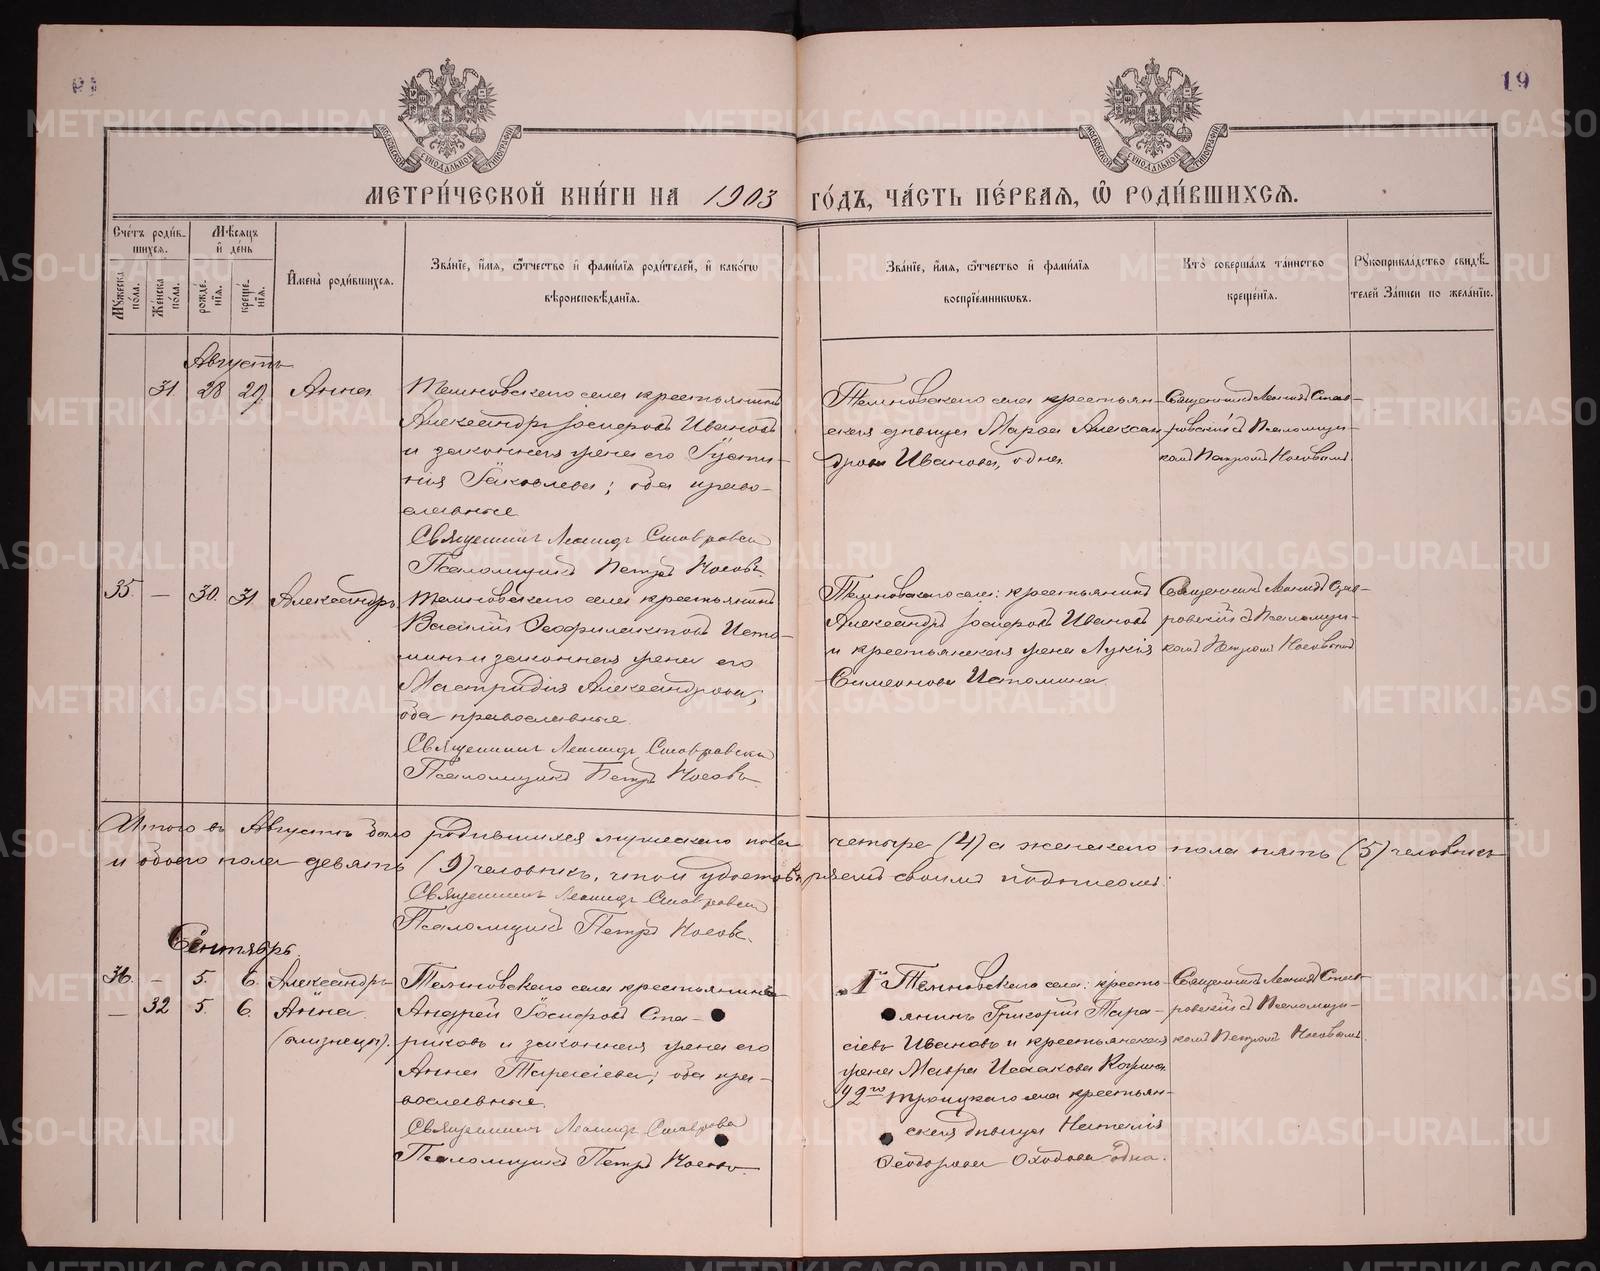 19
МЕТРИ́ЧЕСКОЙ КНИ́ГИ НА 1903 ГО́ДЪ, ЧА́СТЬ ПЕ́РВАЯ, Ѽ РОДИ́ВШИХСЯ.
Сче́тъ роди́в-
шихся.
Мꙋ́жеска по́ла.
Же́нска по́ла.
Мѣ́сяцъ
и҆ де́нь
рожде́-
нїѧ.
креще́-
нїѧ.
И҆мена̀ роди́вшихся.
Зва́нїе, и҆́мѧ, ѻ҆́тчество и҆ фами́лїѧ роди́телей, и҆ како́гѡ
вѣроисповѣ́данїѧ.
Зва́нїе, и҆́мѧ, ѻ҆́тчество и҆ фами́лїѧ
воспрїе́мникѡвъ.
Кто̀ соверша́лъ та́инство
креще́нїѧ.
Рꙋкоприкла́дство свидѣ́-
телей за́писи по жела́нїю.
Августъ
31 28 29 Анна
Темновскаго села крестьянинъ
Александръ Іосифовъ Ивановъ
и законная жена его Іусти-
нія Іаковлева; оба право-
славные
Священникъ Леонидъ Ставровскій
Псаломщикъ Петръ Носовъ.
Темновскаго села крестьян-
ская дѣвица Мароа Алексан-
дрова Иванова, одна.
Священникъ Леонидъ Став-
ровскій съ Псаломщи-
комъ Петромъ Носовымъ.
35. — 30. 31. Александръ
Темновскаго села крестьянинъ
Василій Феофилактовъ Исто-
минъ и законная жена его
Мастридія Александрова;
оба православные.
Священникъ Леонидъ Ставровскій
Псаломщикъ Петръ Носовъ.
Темновскаго села: крестьянинъ
Александръ Іосифовъ Ивановъ
и крестьянская жена Лукія
Симеонова Истомина.
Священникъ Леонидъ Став-
ровскій съ Псаломщи-
комъ Петромъ Носовымъ
Итого въ Августѣ было родившихся мужескаго пола четыре (4) а женскаго пола пять (5) человѣкъ
и обоего пола девять (9) человѣкъ, что и удостовѣряемъ своимъ подписомъ.
Священникъ Леонидъ Ставровскій
Псаломщикъ Петръ Носовъ.
Сентябрь.
36. — 5. 6. Александръ
— 32 5. 6. Анна.
(близнецы).
Темновскаго села крестьянинъ
Андрей Іосифовъ Ста-
риковъ и законная жена его
Анна Тарасіева; оба пра-
вославные.
Священникъ Леонидъ Ставровскій
Псаломщикъ Петръ Носовъ.
1го Темновскаго села: кресть-
янинъ Григорій Тара-
сіевъ Ивановъ и крестьянская
жена Мавра Исаакова
2го Троицкаго села крестьян-
ская дѣвица Наталія
Феодорова Оходова одна.
Священникъ Леонидъ Став-
ровскій съ Псаломщи-
комъ Петромъ Носовымъ.
METRIKI.GASO-URAL.RU